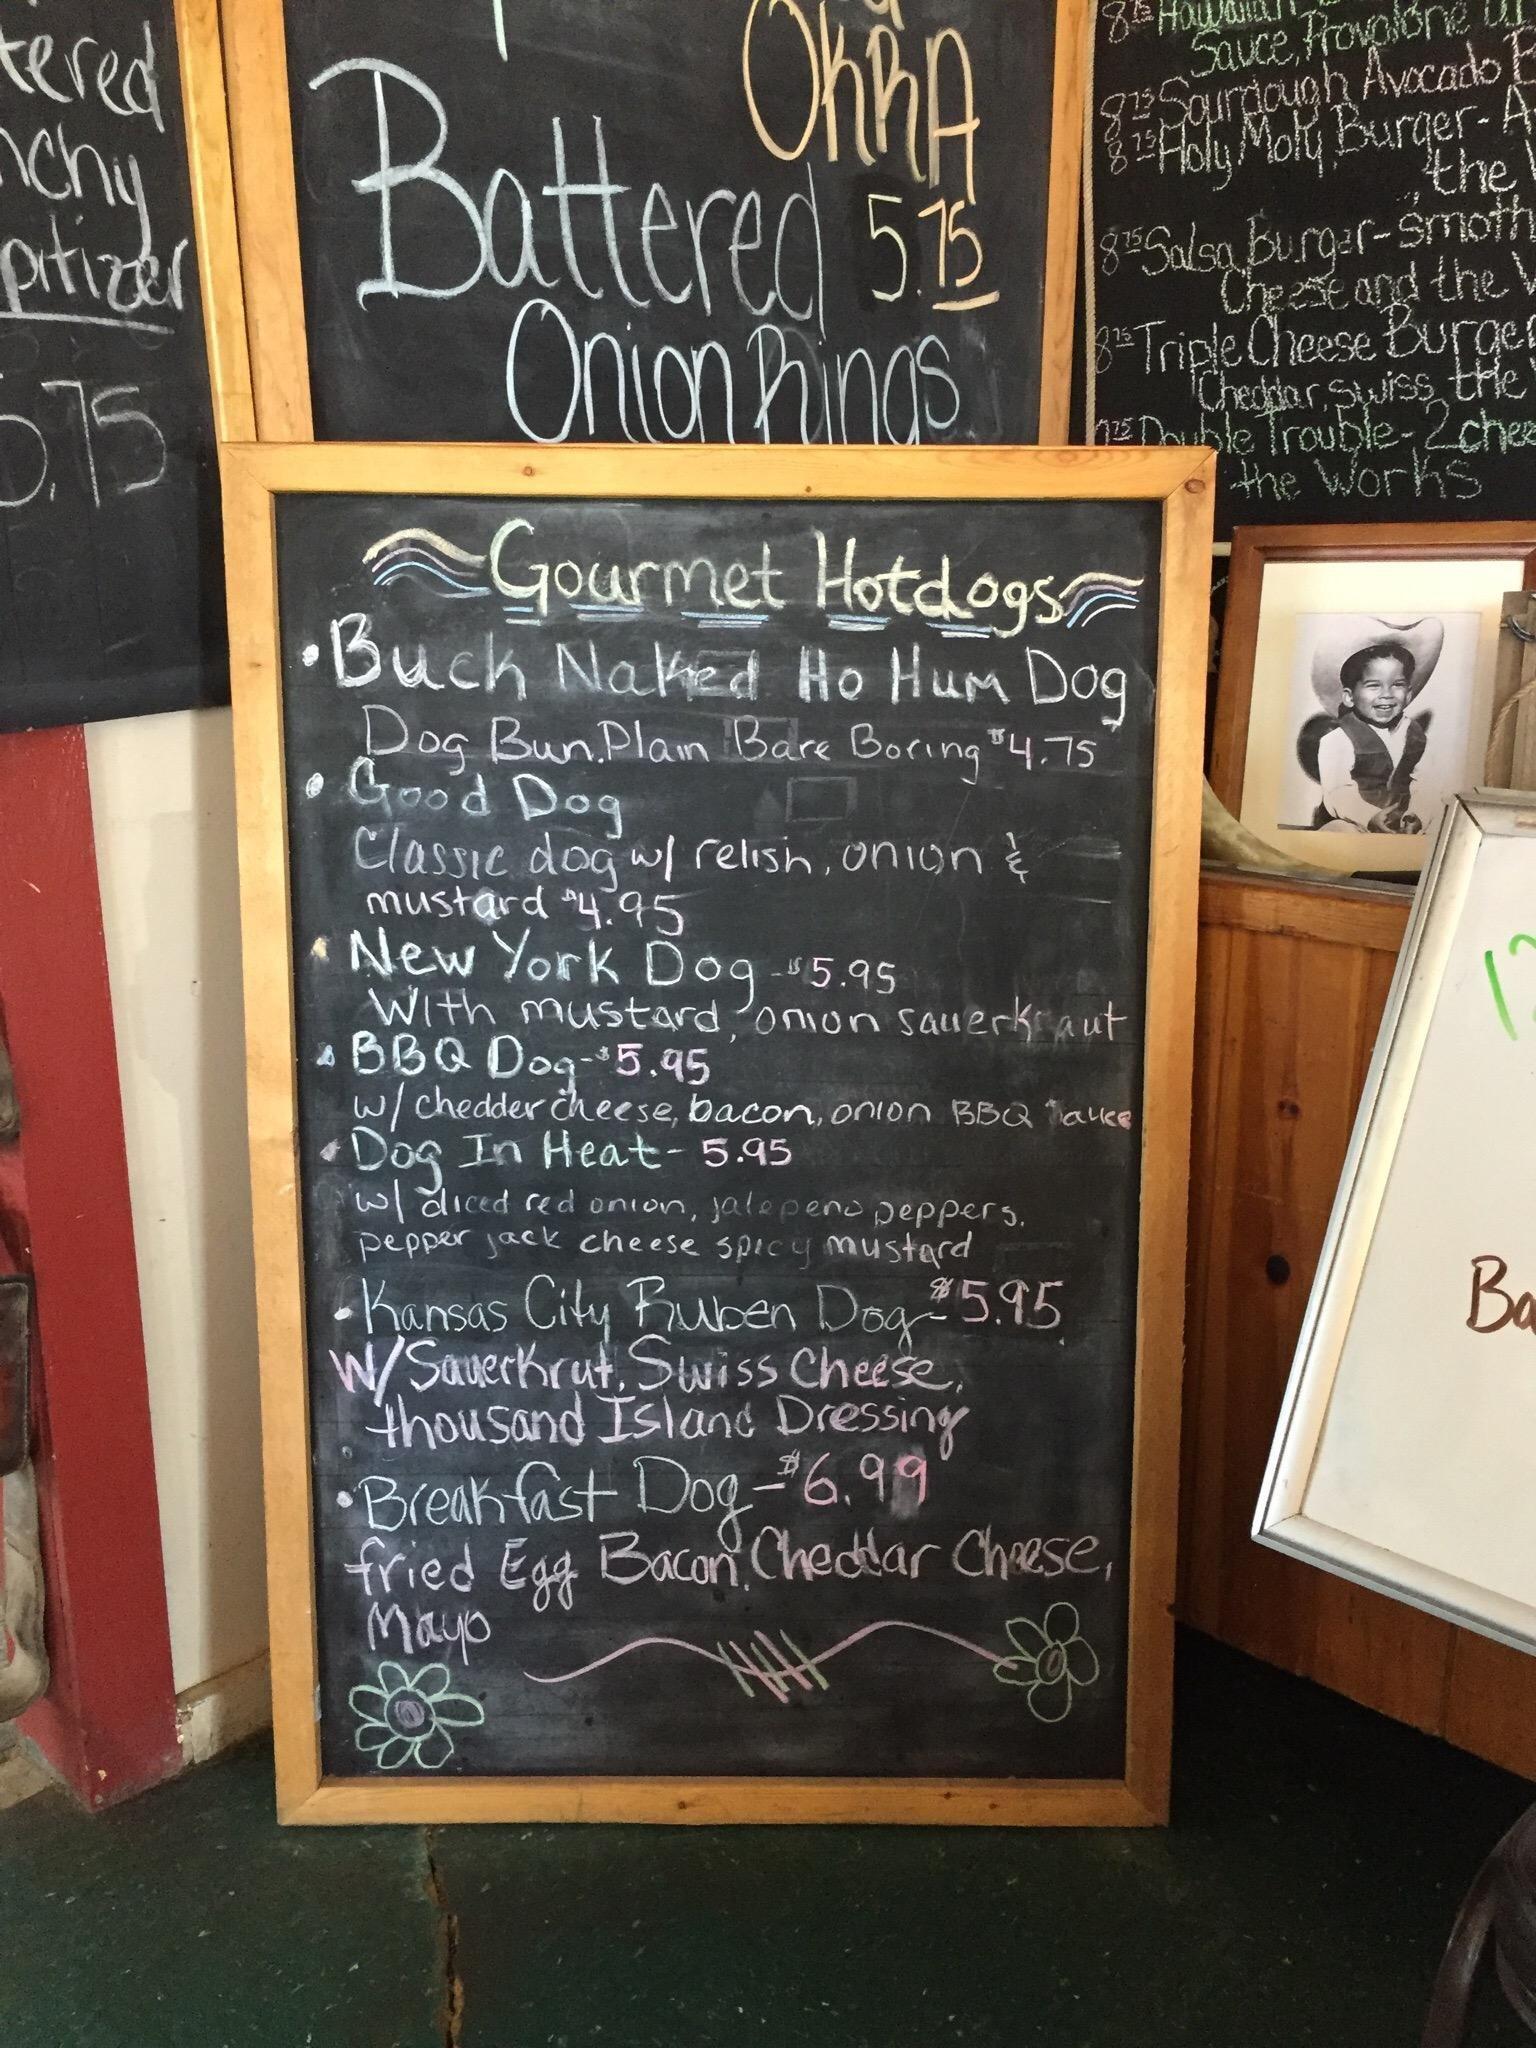 tered
nchy
pitizer
5.75
OKRA
Battered 5.75
Onion Rings
8.75 Hawaiian
Sauce, Provolone
8.75 Sourdough Avocado
8.75 Holy Moly Burger- A
the W
8.75 Salsa Burger- Smoth
Cheese and the W
8.75 Triple Cheese Burger
Cheddar, swiss, the
Double Trouble- 2 chee
the Works
Gourmet Hotdogs
• Buck Naked Ho Hum Dog
Dog Bun. Plain Bare Boring $4.75
• Good Dog
Classic dog w/ relish, onion &
mustard $4.95
• New York Dog - $5.95
With mustard, onion sauerkraut
• BBQ Dog - $5.95
w/ chedder cheese, bacon, onion BBQ sauce
• Dog In Heat - 5.95
w/ diced red onion, jalepeno peppers,
pepper jack cheese spicy mustard
• Kansas City Ruben Dog - $5.95
w/ Sauerkrut, Swiss Cheese,
thousand Island Dressing
• Breakfast Dog - $6.99
fried Egg Bacon, Cheddar Cheese,
Mayo
Ba